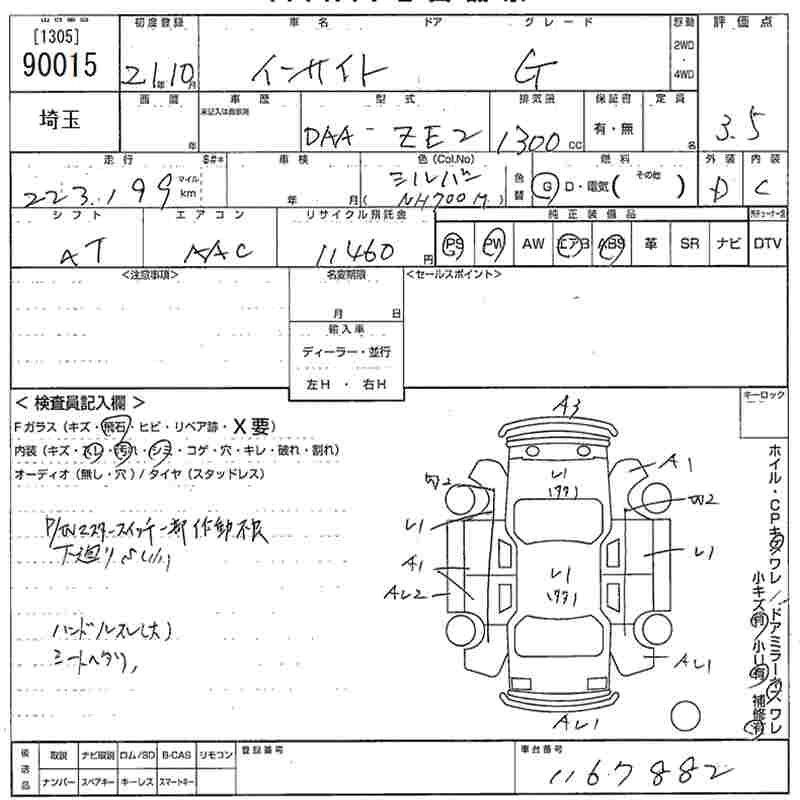 [1305]
90015
初度登録
21年10月
車名
インサイト
ドア
グレード
G
駆動
2WD
・
4WD
評価点
3.5
埼玉
西暦
年
車歴
未記入は自家用
型式
DAA-ZE2
排気量
1300cc
保証書
有・無
定員
名
走行
223,199
マイル
km
$#*
車検
年 月
色(Col.No)
シルバー
(NH700M)
色替
燃料
G D・電気( その他 )
外装
D
内装
C
シフト
AT
エアコン
AAC
リサイクル預託金
11460円
純正装備品
PS PW AW エアB ABS 革 SR ナビ
DTV
<注意事項>
名変期限
月 日
輸入車
ディーラー・並行
左H ・ 右H
<セールスポイント>
キーロック
< 検査員記入欄 >
Fガラス(キズ・飛石・ヒビ・リペア跡・X要)
内装(キズ・スレ・汚れ・シミ・コゲ・穴・キレ・破れ・割れ)
オーディオ(無し・穴)/タイヤ(スタッドレス)
P/Wマスタースイッチ一部作動不良
下廻りサビ
ハンドルスレ(大)
シートヘタリ,
A3
A1
W2
W2
L1
L1
L1
A1
AL2
L1
AL1
AL1
ホイル・CPキズワレ/ドアミラーキズワレ
小キズ有/小凹有 補修有
後送品
取説 ナビ取説 ロム/SD B-CAS リモコン
ナンバー スペアキー キーレス スマートキー
登録番号
車台番号
1167882